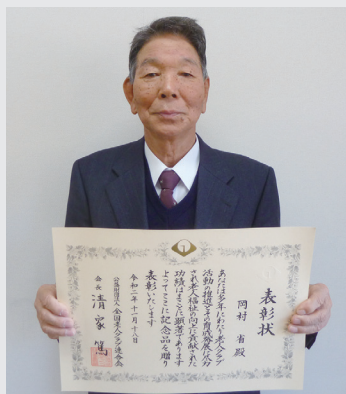 表彰状
岡村 省 殿
あなたは多年にわたり老人クラブ
活動の推進とその育成発展に尽力
され老人福祉の向上に貢献された
功績はまことに顕著であります
よってここに記念品を贈り
表彰いたします
令和二年十一月十八日
公益財団法人 全国老人クラブ連合会
会長 清家 篤